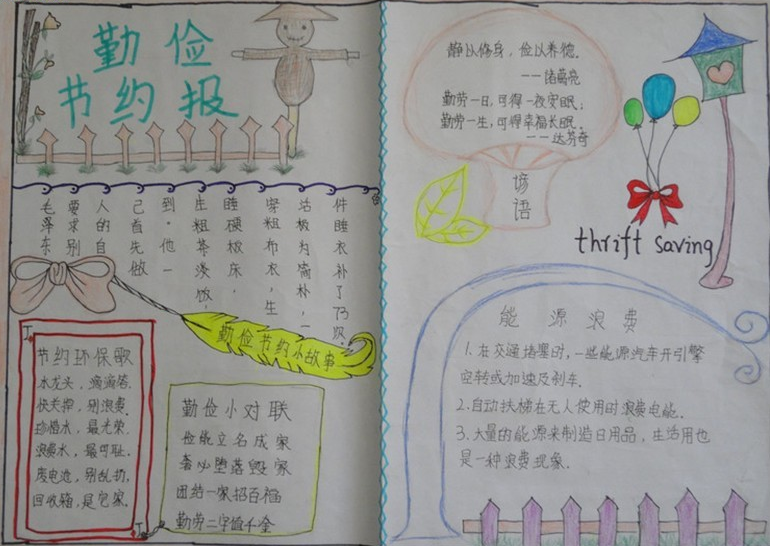 勤俭
节约报
毛泽东
要求别
人的自
己首先做
到·他一
生粗茶淡饭,
睡硬板床,
穿粗布衣,生
活极为简朴,一
件睡衣补了73次。
勤俭节约小故事
节约环保歌
水龙头,滴滴答.
快关掉,别浪费.
珍惜水,最光荣.
浪费水,最可耻.
废电池,别乱扔,
回收箱,是它家.
勤俭小对联
俭能立名成家
奢必堕落毁家
团结一家招百福
勤劳二字值千金
静以修身,俭以养德.
——诸葛亮
勤劳一日,可得一夜安眠;
勤劳一生,可得幸福长眠.
——达芬奇
谚语
thrift saving
能源浪费
1.在交通堵塞时,一些能源汽车开引擎
空转或加速及刹车.
2.自动扶梯在无人使用时浪费电能.
3.大量的能源来制造日用品,生活用也
是一种浪费现象.